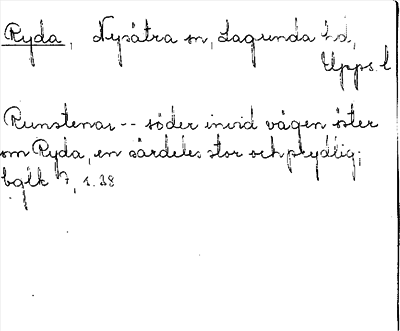 Ryda, Nysätra sn, Lagunda hd,
Upps. l
Runstenar -- söder invid vägen öster
om Ryda, en särdeles stor och prydlig;
bglk 7, s. 28